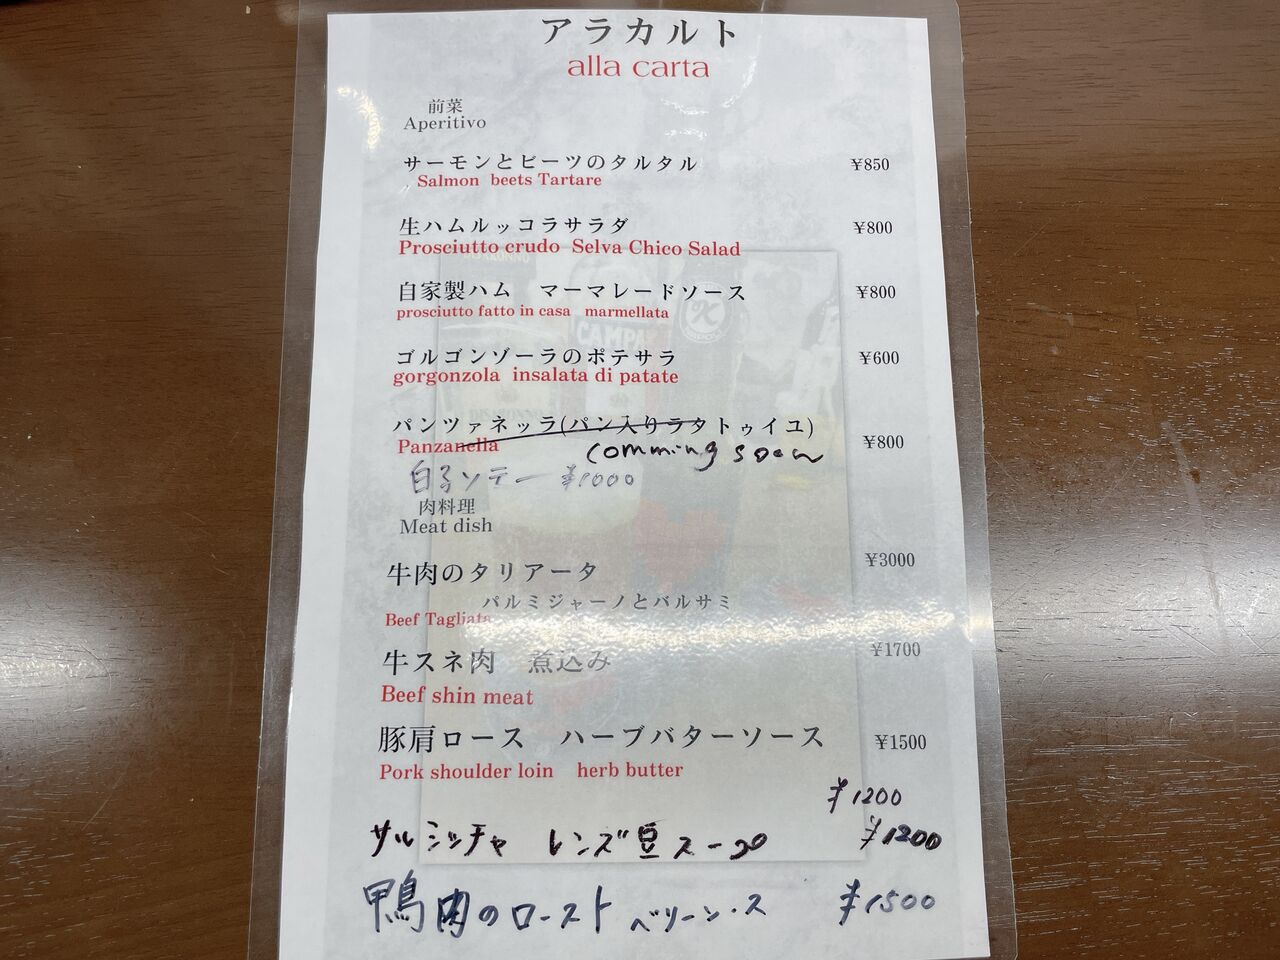 アラカルト
alla carta
前菜
Aperitivo
サーモンとビーツのタルタル ¥850
Salmon beets Tartare
生ハムルッコラサラダ ¥800
Prosciutto crudo Selva Chico Salad
自家製ハム マーマレードソース ¥800
prosciutto fatto in casa marmellata
ゴルゴンゾーラのポテサラ ¥600
gorgonzola insalata di patate
パンツァネッラ(パン入りラタトゥイユ) ¥800
Panzanella comming soon
白子ソテー ¥1000
肉料理
Meat dish
牛肉のタリアータ ¥3000
パルミジャーノとバルサミ
Beef Tagliata
牛スネ肉 煮込み ¥1700
Beef shin meat
豚肩ロース ハーブバターソース ¥1500
Pork shoulder loin herb butter
¥1200
サルシッチャ レンズ豆スープ ¥1200
鴨肉のロースト ベリーソース ¥1500